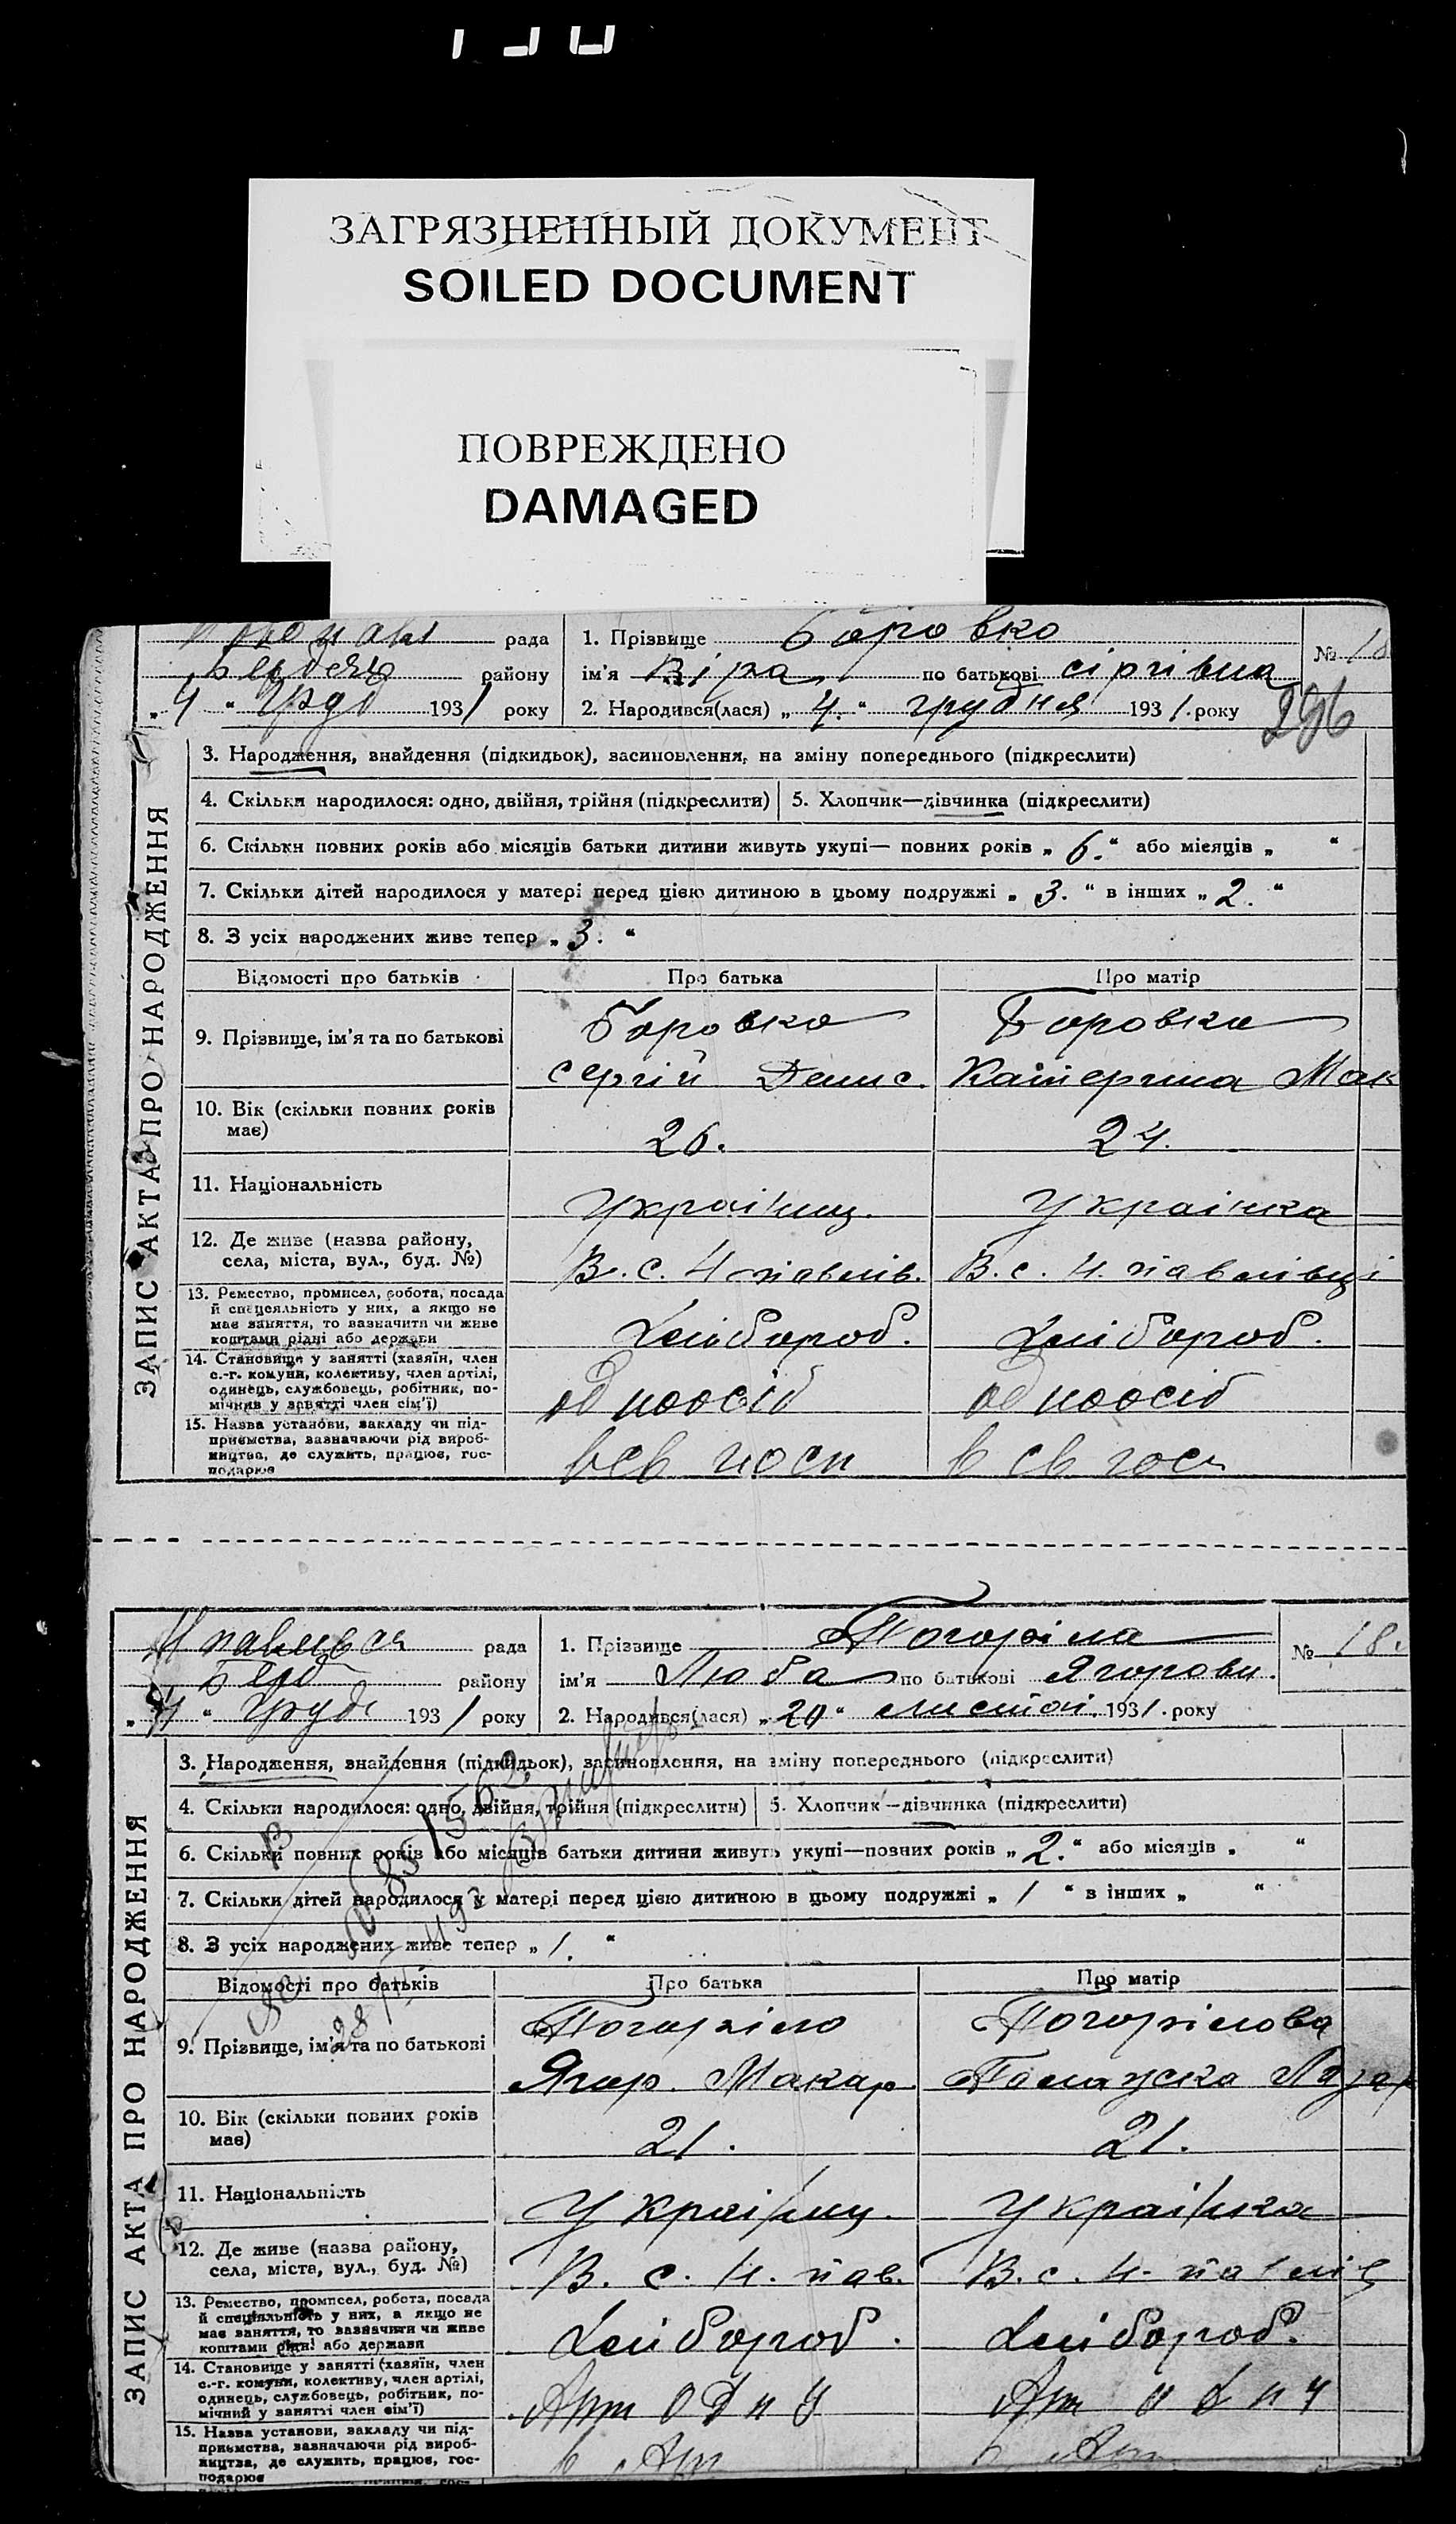 ЗАГРЯЗНЕННЫЙ ДОКУМЕНТ
SOILED DOCUMENT
ПОВРЕЖДЕНО
DAMAGED
рада
району
„ 4 “ груд 1931 року
1. Прізвище Боровко
ім'я Віра по батькові сіргівна
2. Народився(лася) „ 4. “ грудня 1931. року
№ 18
296
ЗАПИС АКТА ПРО НАРОДЖЕННЯ
3. Народження, знайдення (підкидьок), засиновлення, на зміну попереднього (підкреслити)
4. Скільки народилося: одно, двійня, трійня (підкреслити) 5. Хлопчик—дівчинка (підкреслити)
6. Скільки повних років або місяців батьки дитини живуть укупі— повних років „ 6. “ або місяців „ “
7. Скільки дітей народилося у матері перед цією дитиною в цьому подружжі „ 3. “ в інших „ 2. “
8. З усіх народжених живе тепер „ 3. “
Відомості про батьків Про батька Про матір
9. Прізвище, ім'я та по батькові
Боровко Боровко
Сергій Денис. Катерина Мак
10. Вік (скільки повних років має)
26. 24.
11. Національність
Украінец. Украінка
12. Де живе (назва району, села, міста, вул., буд. №)
В. с. Н павлів. В. с. Н. павлівці
13. Ремество, промисел, робота, посада й спеціяльність у них, а якщо не має заняття, то зазначити чи живе коштами рідні або держави
Хлібороб. Хлібороб.
14. Становище у занятті (хазяїн, член с.-г. комуни, колективу, член артілі, одинець, службовець, робітник, помічник у занятті член сім'ї)
одноосіб одноосіб
15. Назва установи, закладу чи підприємства, зазначаючи рід виробництва, де служить, працює, господарює
в св госп в св госп
Н павлівся рада
Берд району
„ 4 “ Груд 1931 року
1. Прізвище Погоріла
ім'я Люба по батькові Ягоровн.
2. Народився(лася) „ 20 “ листоп. 1931. року
№ 18.
ЗАПИС АКТА ПРО НАРОДЖЕННЯ
3. Народження, знайдення (підкидьок), засиновлення, на зміну попереднього (підкреслити)
4. Скільки народилося: одно, двійня, трійня (підкреслити) 5. Хлопчик—дівчинка (підкреслити)
6. Скільки повних років або місяців батьки дитини живуть укупі—повних років „ 2. “ або місяців „ “
7. Скільки дітей народилося у матері перед цією дитиною в цьому подружжі „ 1 “ в інших „ “
8. З усіх народжених живе тепер „ 1. “
Відомості про батьків Про батька Про матір
9. Прізвище, ім'я та по батькові
Погоріло Погорілова
Ягор. Макар
10. Вік (скільки повних років має)
21. 21.
11. Національність
Украінец. Украінка
12. Де живе (назва району, села, міста, вул., буд. №)
В. с. Н. пав. В. с. Н. павлів
13. Ремество, промисел, робота, посада й спеціяльність у них, а якщо не має заняття, то зазначити чи живе коштами рідні або держави
Хлібороб. Хлібороб.
14. Становище у занятті (хазяїн, член с.-г. комуни, колективу, член артілі, одинець, службовець, робітник, помічний у занятті член сім'ї)
15. Назва установи, закладу чи підприємства, зазначаючи рід виробництва, де служить, працює, господарює
в Арт